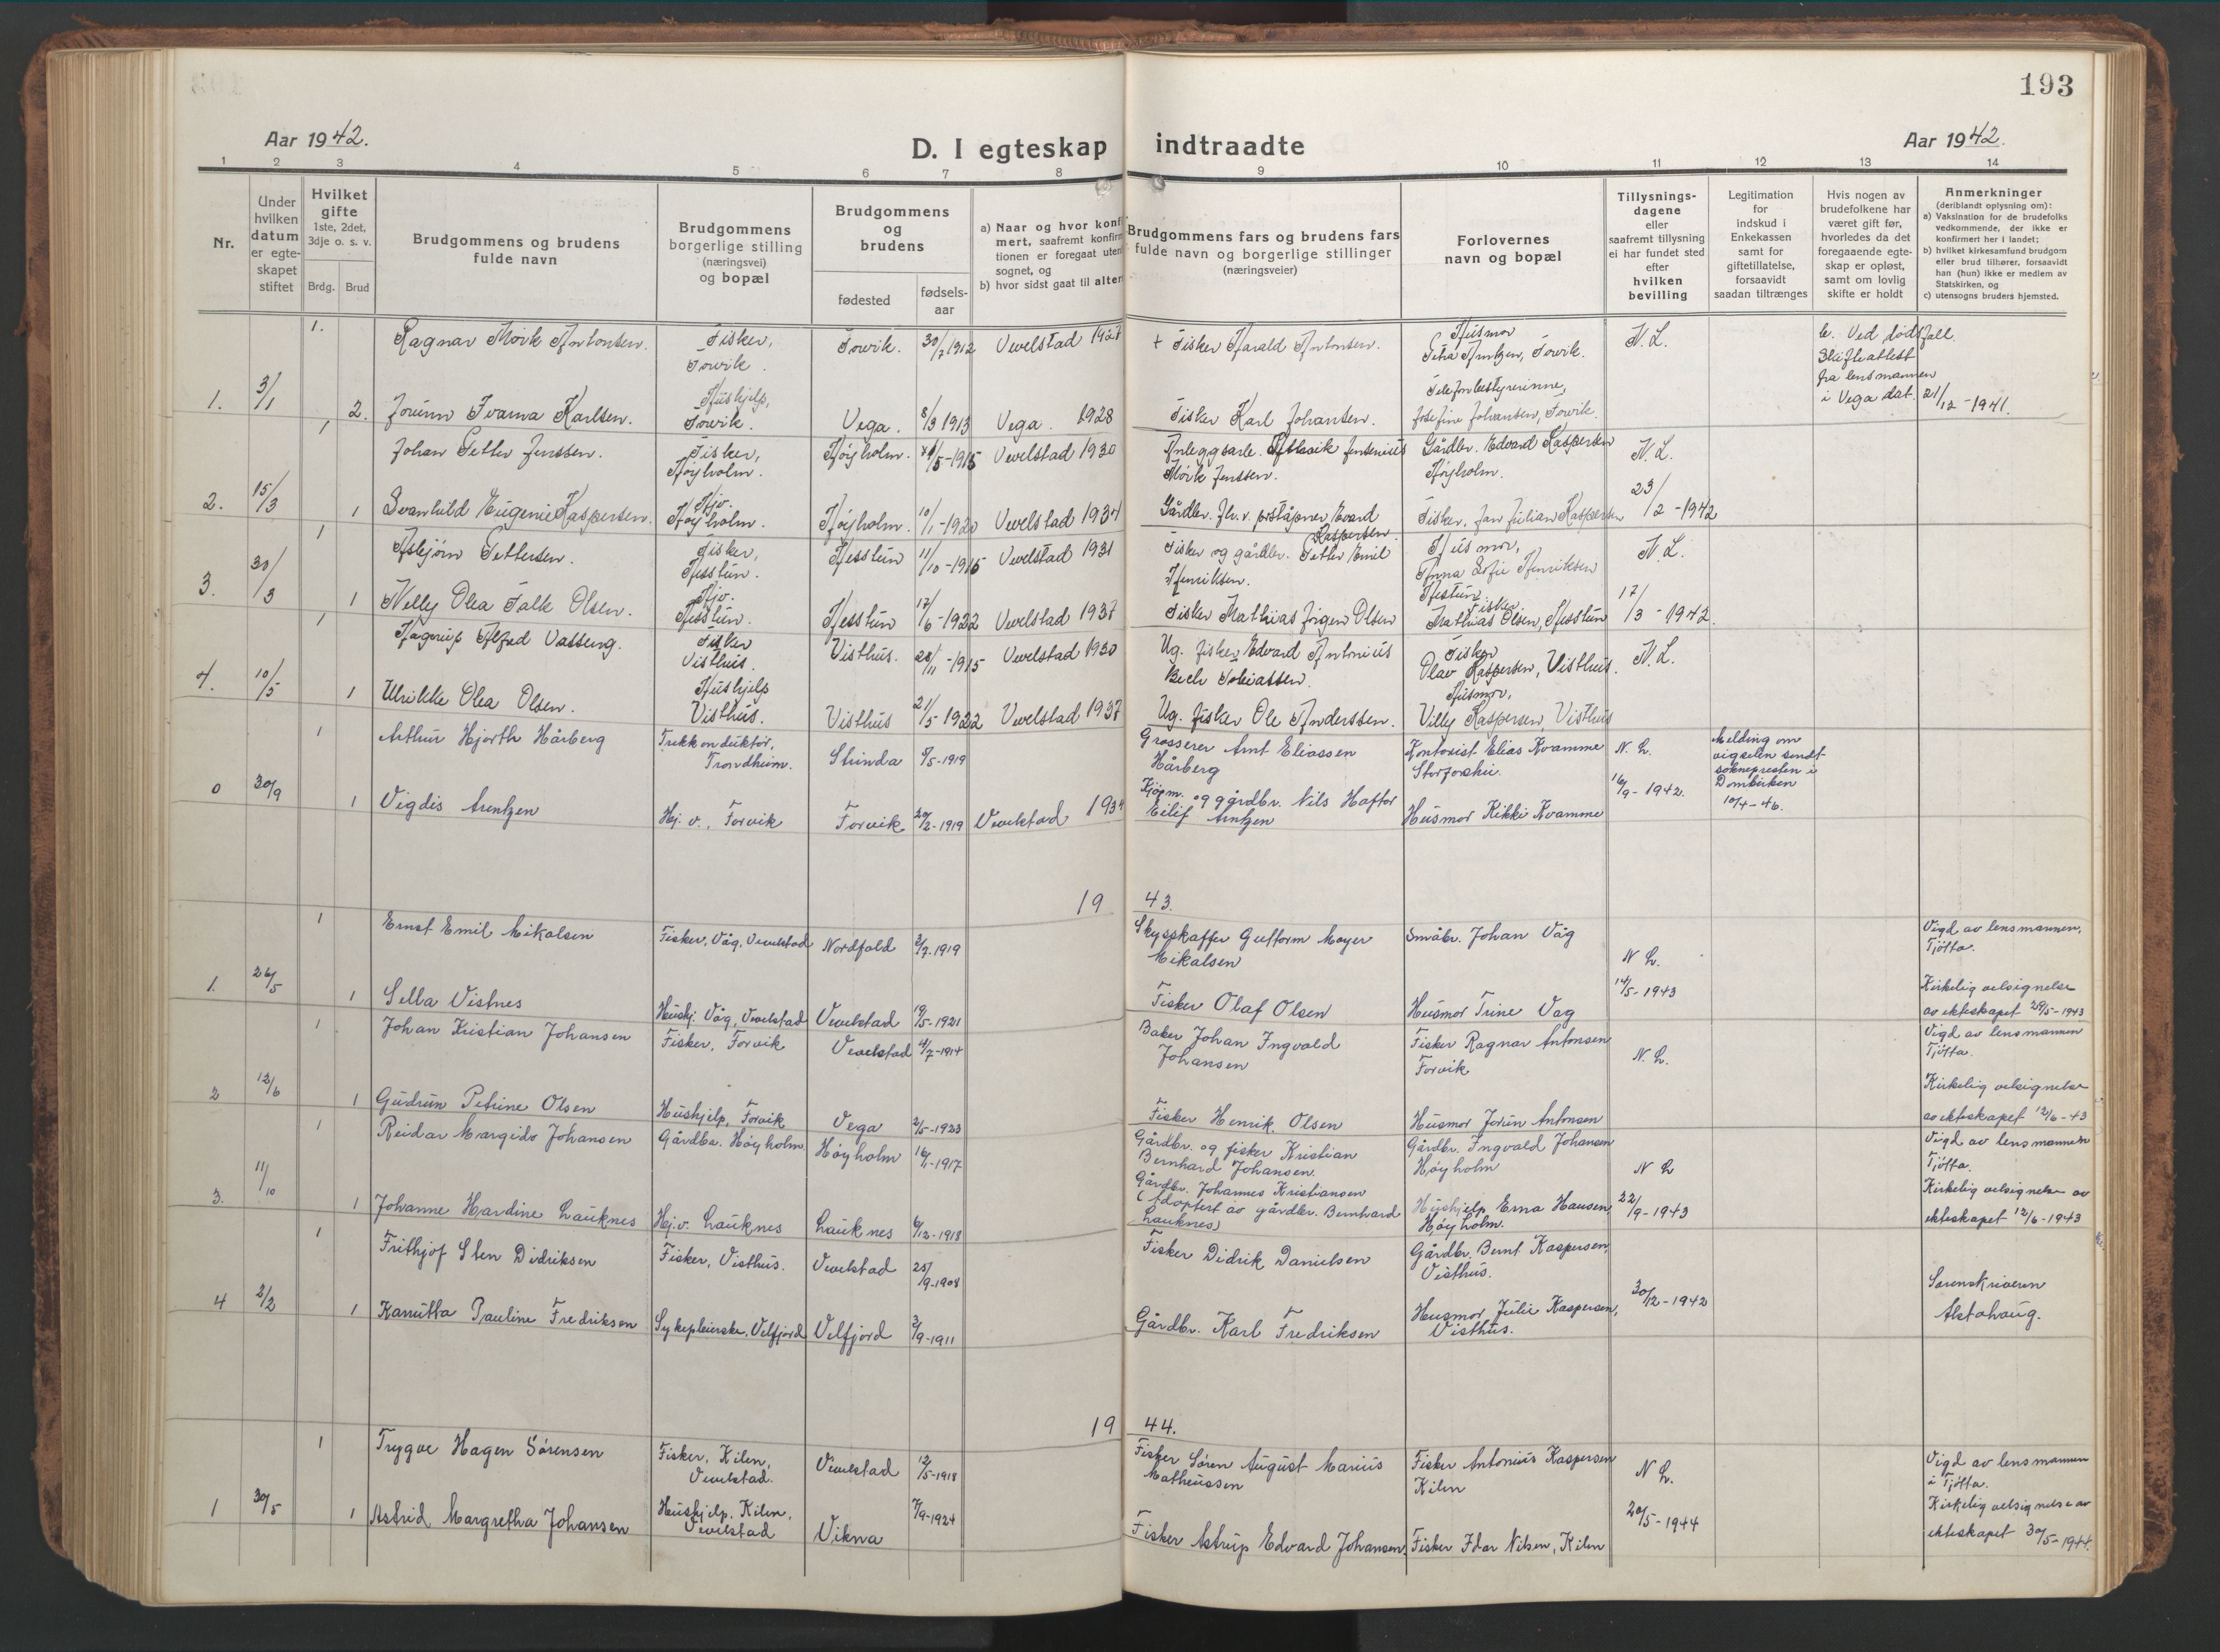 193
Aar 1942.
D. I egteskap indtraadte
Aar 1942.
1 2 3 4 5 6 7 8 9 10 11 12 13 14
Nr.
Under hvilken datum er egteskapet stiftet
Hvilket gifte 1ste, 2det, 3dje o. s. v.
Brdg. Brud
Brudgommens og brudens fulde navn
Brudgommens borgerlige stilling (næringsvei) og bopæl
Brudgommens og brudens
fødested
fødsels-aar
a) Naar og hvor konf
mert, saafremt konfirm
tionen er foregaat uten
sognet, og
b) hvor sidst gaat til alter
Brudgommens fars og brudens fars
fulde navn og borgerlige stillinger
(næringsveier)
Forlovernes
navn og bopæl
Tillysnings-
dagene
eller
saafremt tillysning
ei har fundet sted
efter
hvilken
bevilling
Legitimation
for
indskud i
Enkekassen
samt for
giftetillatelse,
forsaavidt
saadan tiltrænges
Hvis nogen av
brudefolkene har
været gift før,
hvorledes da det
foregaaende egte-
skap er opløst,
samt om lovlig
skifte er holdt
Anmerkninger
(deriblandt oplysning om):
a) Vaksination for de brudefolks
vedkommende, der ikke er
konfirmert her i landet;
b) hvilket kirkesamfund brudgom
eller brud tilhører, forsaavidt
han (hun) ikke er medlem av
Statskirken, og
c) utensogns bruders hjemsted.
1. Ragnar Mørk Antonsen. Fisker, Forvik. Forvik. 30/7 1912 Vevelstad 1927 + Fisker Harald Antonsen. Husmor Petra Arntzen, Forvik. N.L. Ved dødsfall. Skifteattest fra lensmannen i Vega dat. 21/12-1941.
1. 3/1 2. Jorunn Ivarna Karlsen. Hushjelp, Forvik. Vega. 8/3 1913 Vega. 1928 Fisker Karl Johansen. Telefonbestyrerinne, Josefine Johansen, Forvik.
1 Johan Petter Jenssen. Fisker, Høyholm. Høyholm. /5-1915 Vevelstad 1930 Anleggsarb. Jentenius Mörk Jenssen. Gårdbr. Edvard Kaspersen Høyholm. N.L.
2. 15/3 1 Svanhild Eugenie Kaspersen. Hjv. Høyholm. Høyholm. 10/1-1920 Vevelstad 1934 Gårdbr. fhv. v. poståpner Evard Kaspersen. Fisker, Jan Julian Kaspersen 23/2-1942
1 Asbjørn Pettersen. Fisker, Hesstun. Hesstun 11/10-1915 Vevelstad 1931 Fisker og gårdbr. Petter Emil Henriksen. Husmor, Anna Sofie Henriksen Hestun. N.L.
3. 30/3 1 Nelly Olea Falk Olsen. Hjv. Hesstun. Hesstun 17/6-1922 Vevelstad 1937 Fisker Mathias Jörgen Olsen Fisker Mathias Olsen, Hesstun 17/3-1942.
1 Hagerup Alfred Vasseng. Fisker Visthus. Visthus. 20/11-1915 Vevelstad 1930 Ug. fisker, Edvard Antonius Bech Tobiassen. Fisker Olav Kaspersen, Visthus. N.L.
4. 10/5 1 Ulrikke Olea Olsen. Hushjelp Visthus. Visthus 21/5-1922 Vevelstad 1937 Ug. fisker Ole Anderssen. Husmor, Villy Kaspersen, Visthus
1 Arthur Hjorth Hårberg Trikkonduktør, Trondheim. Strinda 5/5-1919 Grosserer Arnt Eliassen Hårberg Kontorist Elias Kvamme Storforshei. N. L. Melding om vigselen sendt soknepresten i Domkirken 10/4-46.
0 30/9 1 Vigdis Arntzen Hj. v., Forvik Forvik 20/2-1919 Vevelstad 1934 Kjøpm. og gårdbr. Nils Haftor Eilif Arntzen Husmor Kikki Kvamme 16/9-1942.
1943.
1 Ernst Emil Mikalsen Fisker, Våg, Vevelstad Nordfold 3/7-1919 Skysskaffer Guttorm Meyer Mikalsen Småbr. Johan Våg N L. Vigd av lensmannen, Tjøtta.
1. 26/5 1 Sella Vistnes Hushj. Våg, Vevelstad Vevelstad 19/5-1921 Fisker Olaf Olsen Husmor Trine Vag 14/5-1943 Kirkelig velsignelse av ekteskapet 29/5-1943
1 Johan Kristian Johansen Fisker, Forvik Vevelstad 4/7-1914 Baker Johan Ingvald Johansen Fisker Ragnar Antonsen Forvik N. L. Vigd av lensmannen Tjøtta.
2 12/6 1 Gudrun Petrine Olsen Hushjelp, Forvik Vega 2/5-1923 Fisker Henrik Olsen Husmor Jorun Antonsen Kirkelig velsignelse av ekteskapet 12/6-43
1 Reidar Margido Johansen Gårdbr. Høyholm. Høyholm 16/1-1917 Gårdbr. og fisker Kristian Bernhard Johansen. Gårdbr. Ingvald Johansen Høyholm N L Vigd av lensmannen Tjøtta.
3. 11/10 1 Johanne Hardine Lauknes Hj.v. Lauknes Lauknes 6/12-1918 Gårdbr. Johannes Kristiansen (Adoptert av gårdbr. Bernhard Lauknes) Hushjelp Erna Hansen Høyholm. 22/9-1943 Kirkelig velsignelse av ekteskapet 12/6-1943
1 Frithjof Sten Didriksen Fisker, Visthus. Vevelstad 25/9-1908 Fisker Didrik Danielsen Gårdbr. Bernt Kaspersen, Visthus.
4 2/2 1 Kanutta Pauline Fredriksen Sykepleierske, Velfjord Velfjord 3/9-1911 Gårdbr. Karl Fredriksen Husmor Julie Kaspersen, Visthus. 30/12-1942 Sorenskriveren Alstahaug.
1944.
1 Trygve Hagen Sørensen Fisker, Kilen, Vevelstad. Vevelstad 12/5-1918 Fisker Søren August Marius Matheussen Fisker Antonius Kaspersen Kilen N L. Vigd av lensmannen i Tjøtta.
1 30/5 1 Astrid Margretha Johansen Hushjelp, Kilen, Vevelstad Vikna 7/9-1924 Fisker Astrup Edvard Johansen. Fisker Idar Nilsen, Kilen 20/5-1944 Kirkelig velsignelse av ekteskapet 30/5-1944.